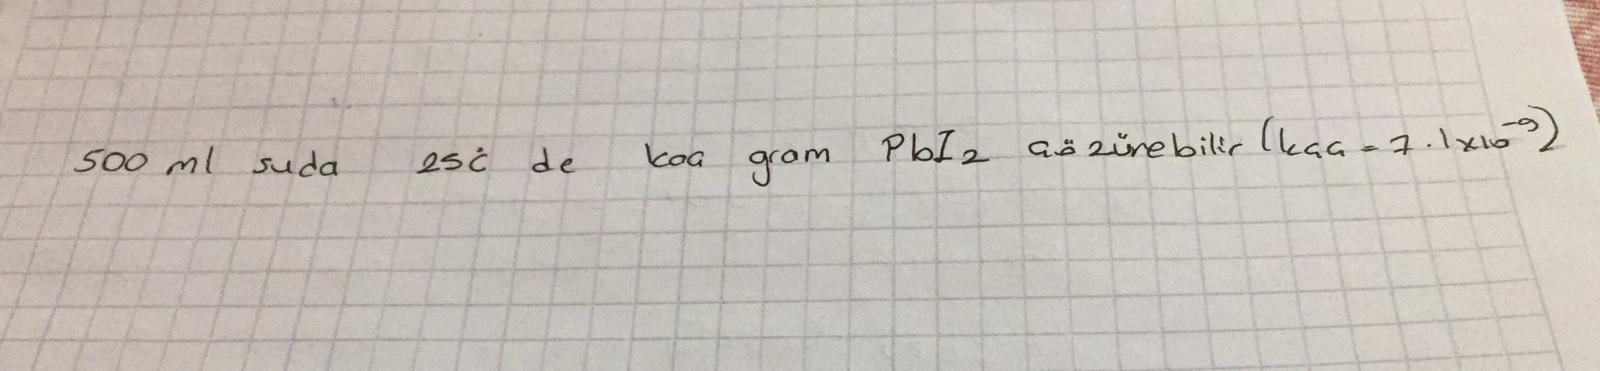 500 ml suda 25ċ de kaç gram PbI₂ çözünebilir (kçç = 7.1x10⁻⁹)